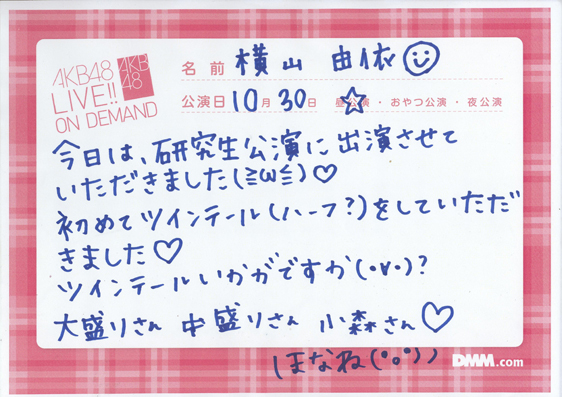 AKB48
LIVE!!
ON DEMAND
AKB
48
名前 横山 由依
公演日 10月30日 ☆昼公演・おやつ公演・夜公演
今日は、研究生公演に出演させて
いただきました(≧ω≦)♡
初めてツインテール(ハーフ?)をしていただ
きました♡
ツインテールいかがですか(・∀・)?
大盛りさん 中盛りさん 小森さん♡
ほなね(°o°))
DMM.com